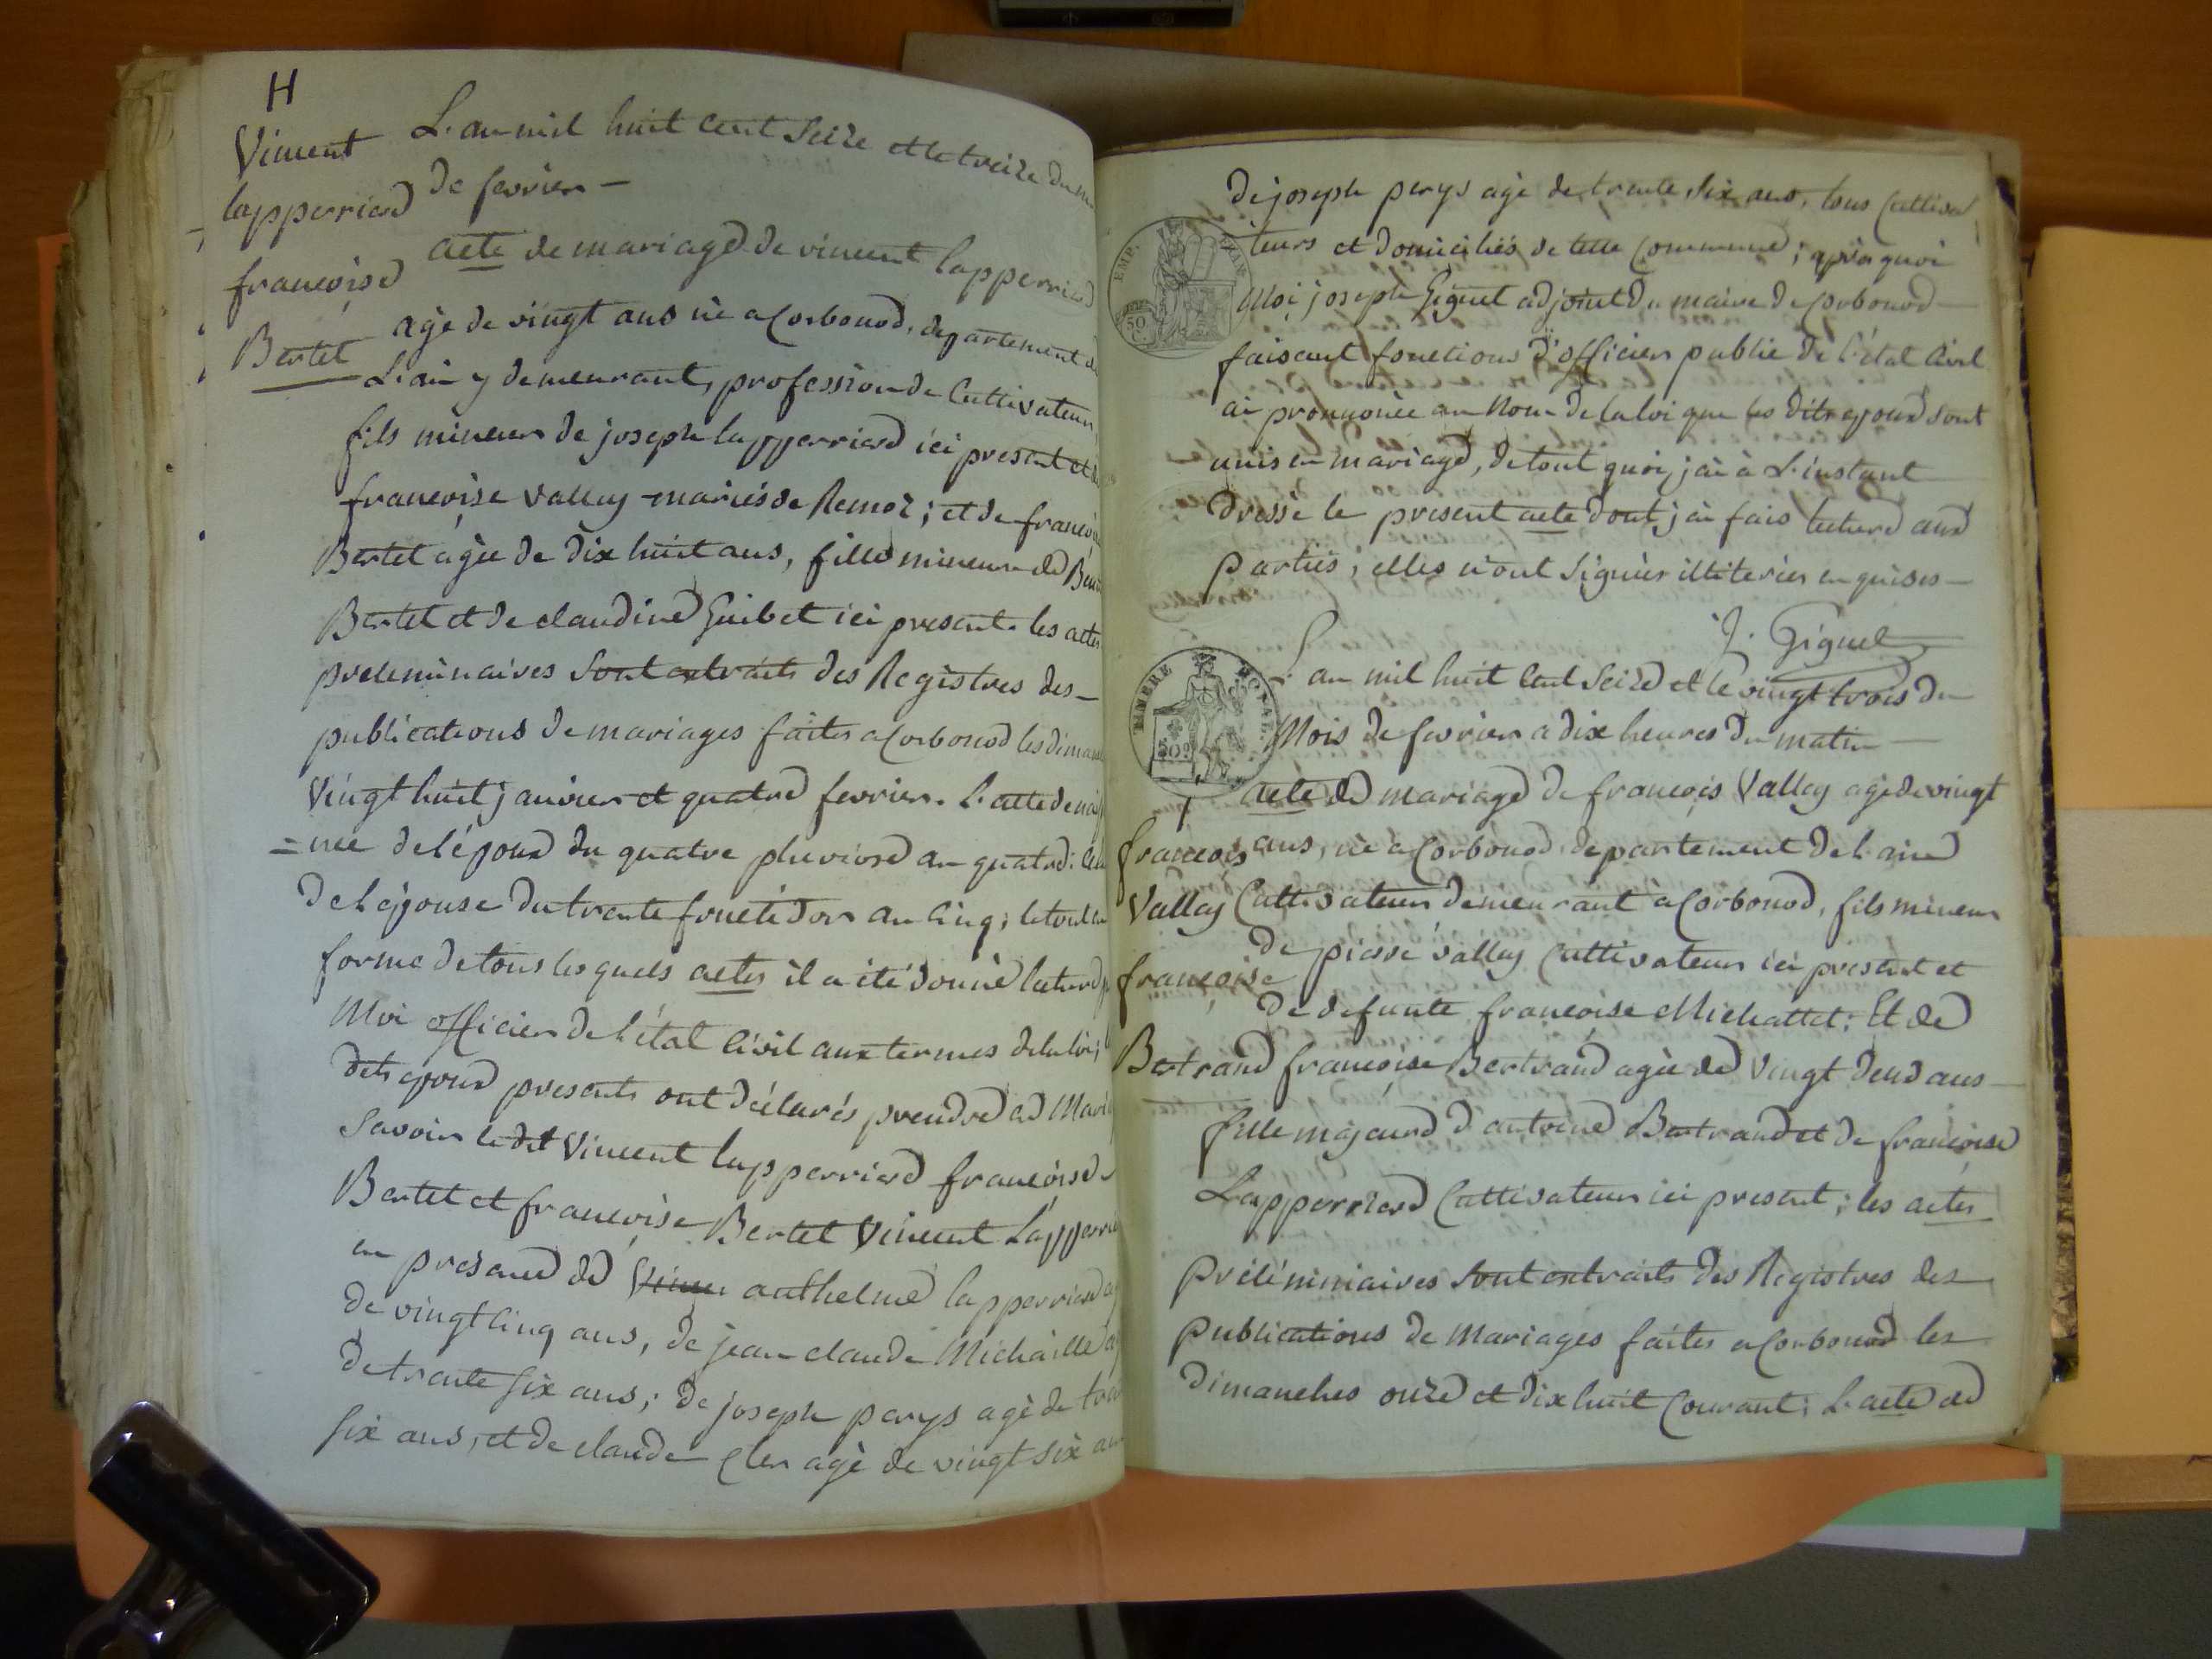 H
Vincent
lapperriere
françoise
Bertet
L'an mil huit cent seize et le treize du
de fevrier —
acte de mariage de vincent lapperriere
agé de vingt ans né a Corbonod, departement de
L'ain y demeurant, profession de Cultivateur,
fils mineur de joseph lapperriere ici present et de
françoise vallay mariés de Remoz ; et de
Bertet agée de dix huit ans, fille mineure de
Bertet et de claudine Guibet ici present. les actes
preleminaires sont extraits des Registres des —
publications de mariages faites a Corbonod les
Vingt huit janvier et quatre fevrier. L'acte de
= nce de l'époux du quatre pluviose an quatre.
de l'épouse du trente fructidor an cinq ; le tout en
forme de tous lesquels actes il a été donné lecture
Moi officier de l'état civil aux termes de la loi,
dits epoux presents ont déclarés prendre en
Savoir ledit Vincent lapperriere françoise
Bertet et françoise Bertet Vincent
en presence de anthelme lapperriere
de vingt cinq ans, de jean claude Michaille
de trente six ans ; de joseph perys agé de
six ans, et de claude agé de vingt six
de joseph perys agé de trente six ans, tous Cultiva
teurs et domiciliés de cette Commune ; après quoi
Moi joseph Giguet adjoint du maire de Corbonod
faisant fonctions d'officier public de l'état Civil
ai prononcée au Nom de la loi que les dits epoux sont
unis en mariage, de tout quoi j'ai à L'instant
dressé le present acte dont j'ai fais lecture aux
parties ; elles n'ont signées illiterées enquises —
J. Giguet
EMP.
50
L'an mil huit cent seize et le vingt trois du
Mois de fevrier a dix heures du matin —
TIMBRE ROYAL
50c
françois
Vallay
françoise
Bertrand
acte de mariage de françois Vallay agé de vingt
ans, né a Corbonod departement de l'ain
Cultivateur demeurant a Corbonod, fils mineur
de pierre vallay Cultivateur ici present et
de defunte françoise Michattet : Et de
françoise Bertrand agée de vingt deux ans —
fille majeure d'antoine Bertrand et de françoise
Lapperriere Cultivateur ici present ; les actes
préléminiaires sont extraits des Registres des
publications de Mariages faites a Corbonod les
dimanches onze et dix huit Courant ; L'acte de